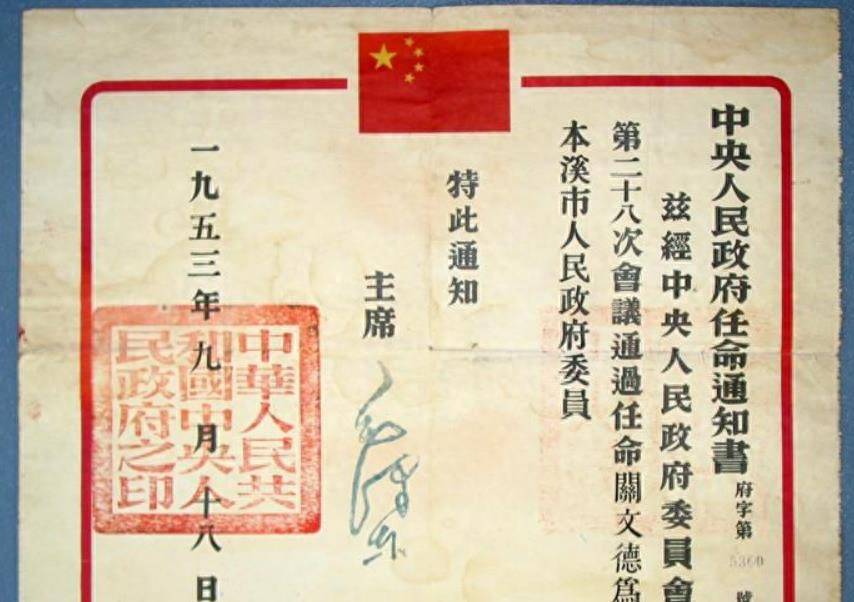 中央人民政府任命通知書
府字第5360號
兹經中央人民政府委員會
第二十八次會議通過任命關文德爲
本溪市人民政府委員
特此通知
主席
毛澤东
一九五三年九月十八日
中華人民共
和國中央人
民政府之印